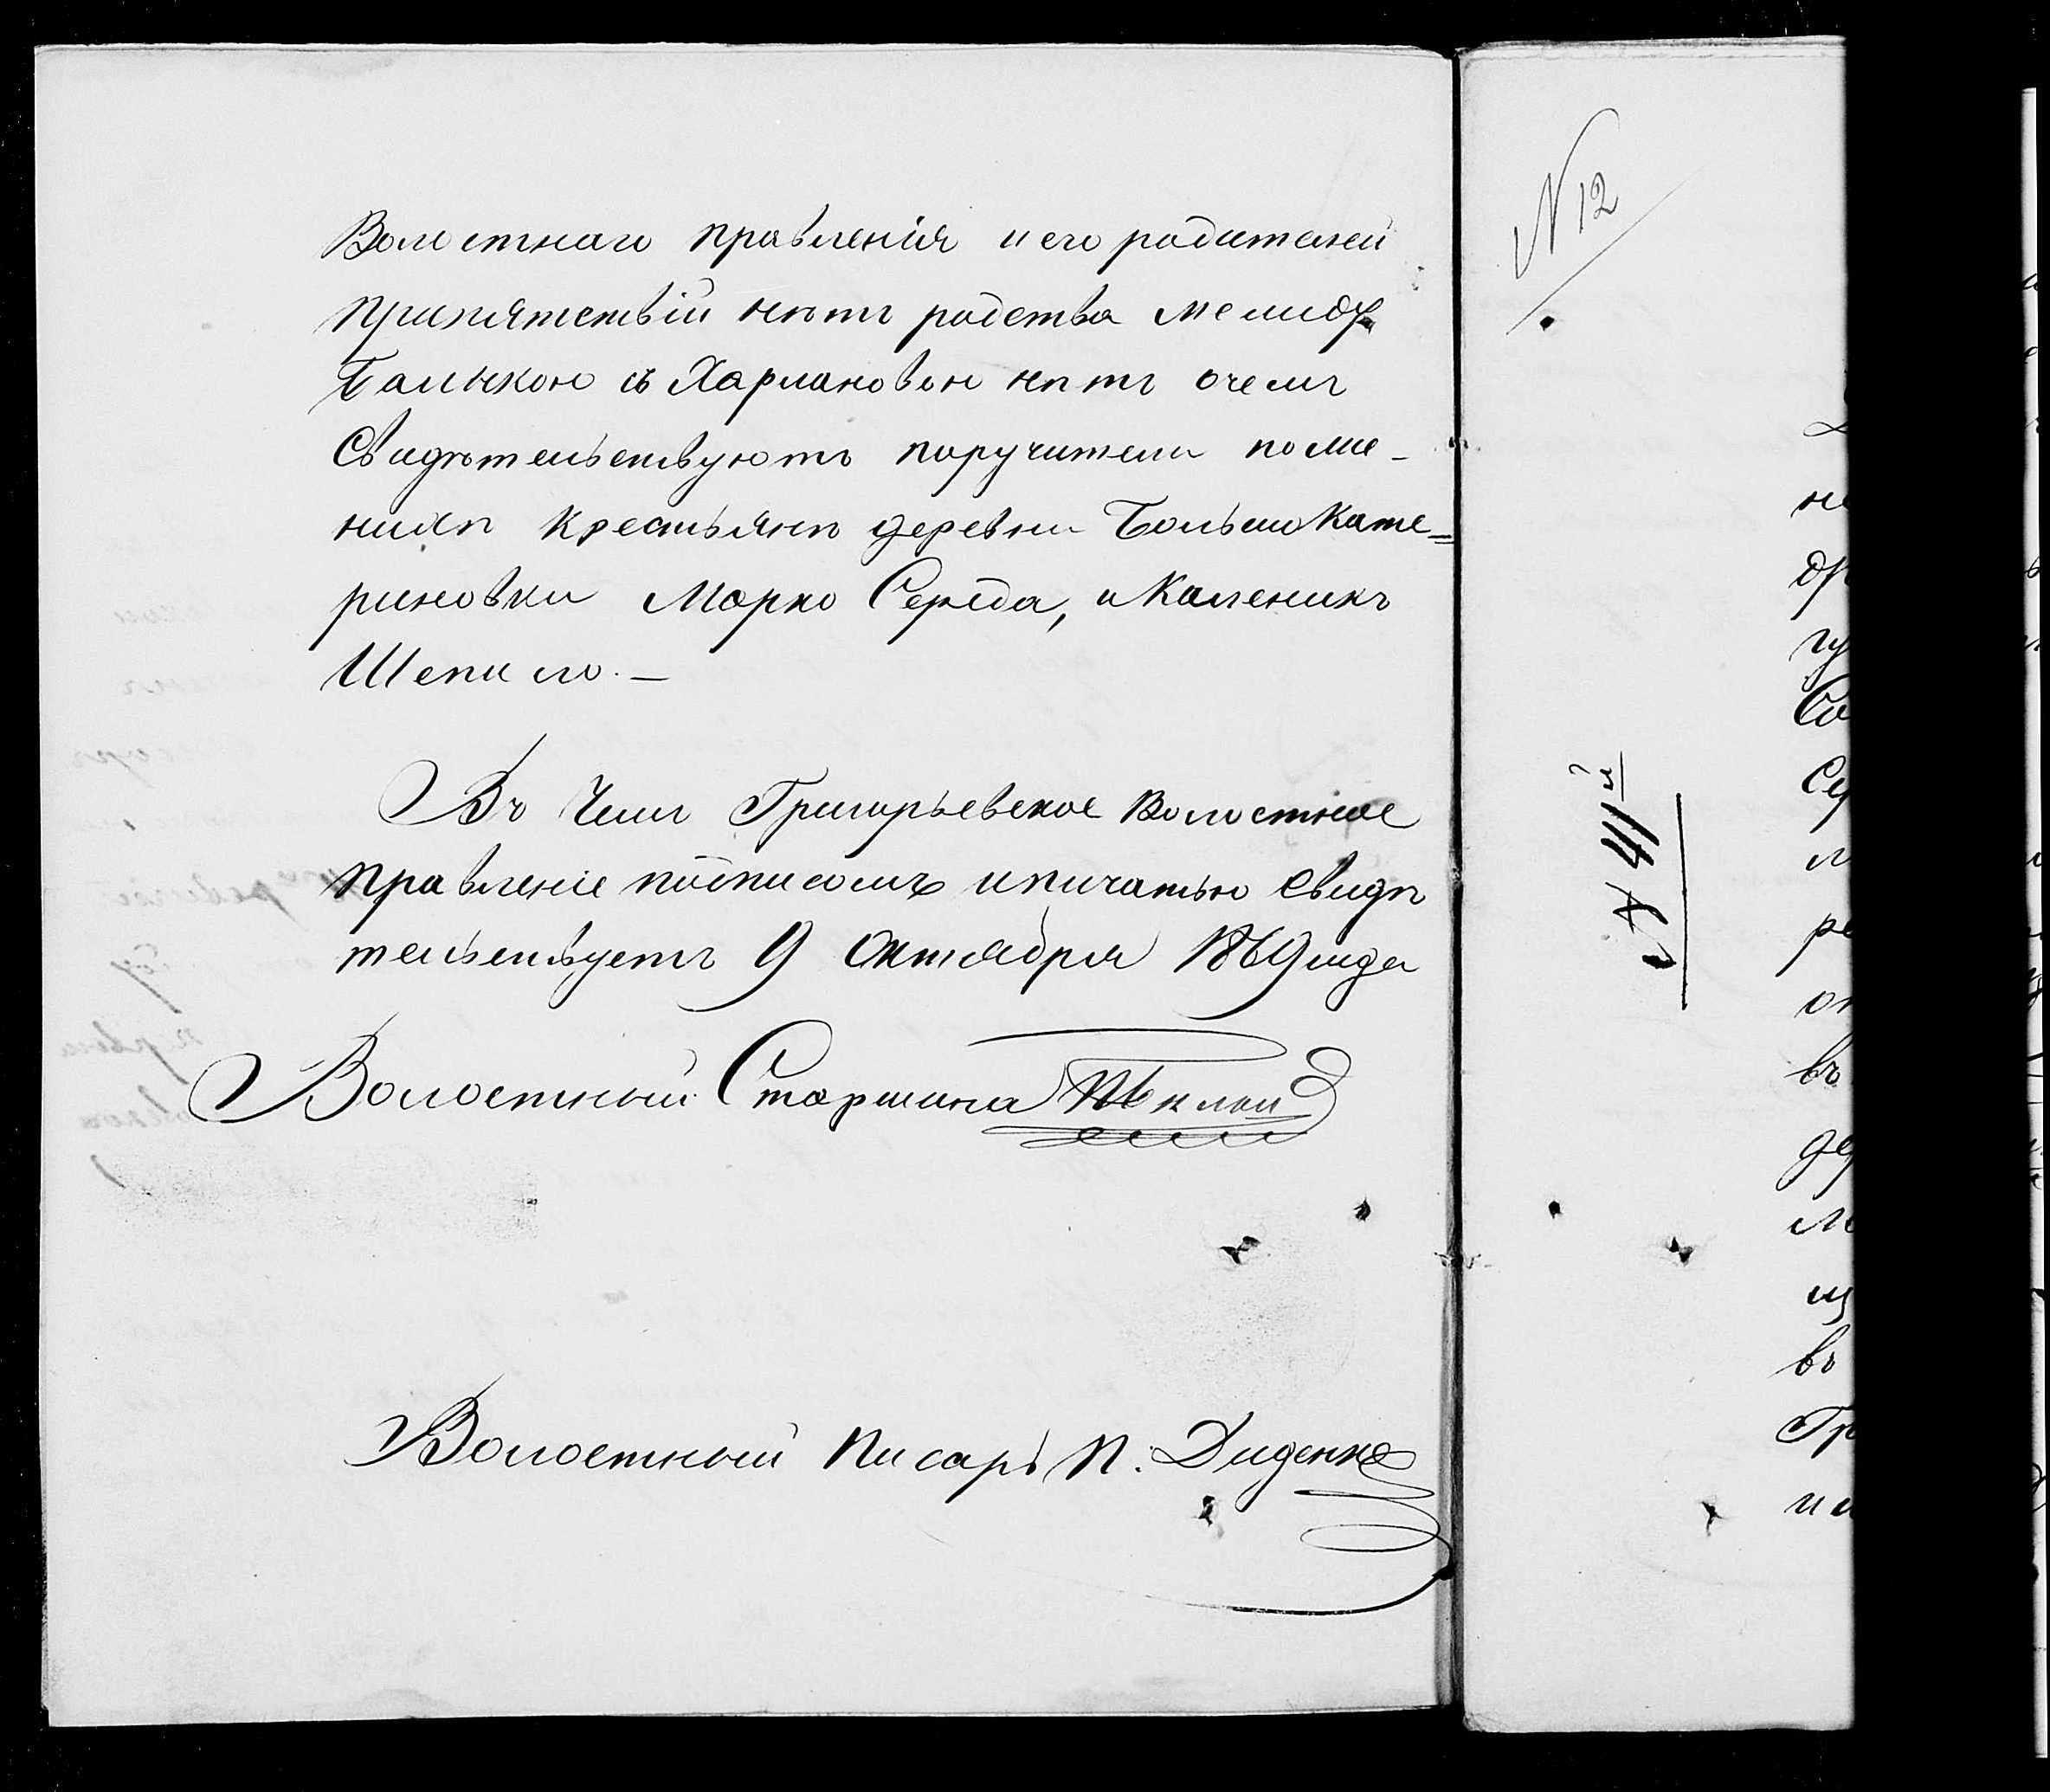 Волостнаго правленія и его родителей
препятствій нетъ родства между
Галькою съ Хармановою нетъ очемъ
Свидѣтельствуютъ поручители
крестьяне деревни Больше Кате=
риновки Марко Середа, и Каленикъ
Шепило. —
Въ Чемъ Григорьевское Волостное
Правленіе подписомъ ипичатью Свиде
тельствуетъ 9 Октября 1869 года
Волостный Старшина
Волостный Писарь П. Диденко
N 12
№ 41й